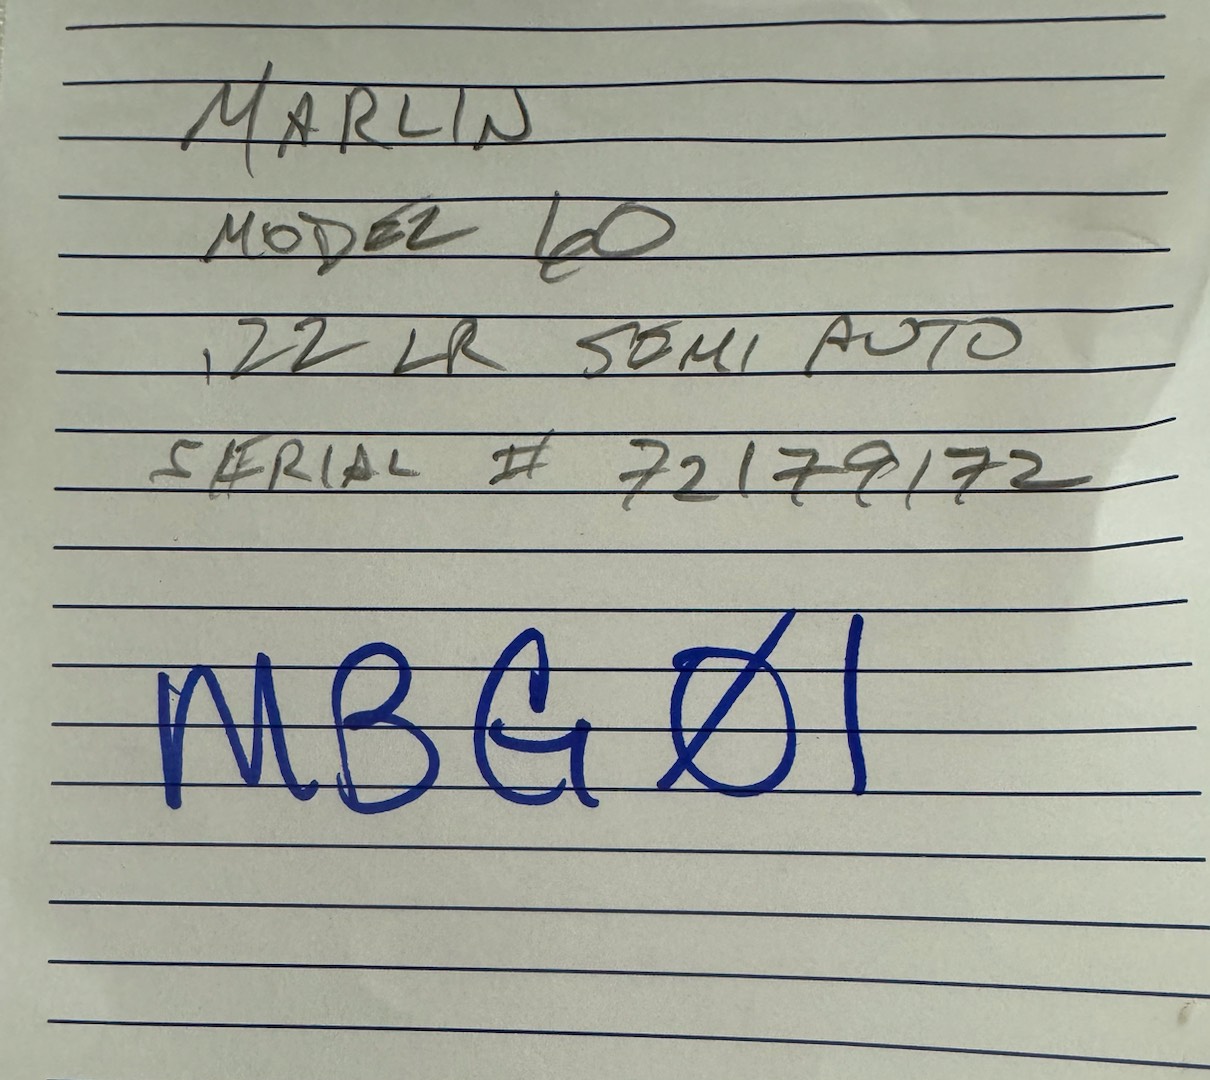 MARLIN
MODEL 60
.22 LR SEMI AUTO
SERIAL # 72179172
MBG Ø1